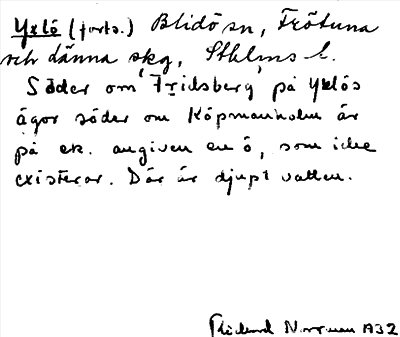 Yxlö (forts.) Blidö sn, Frötuna
och Länna skg, Sthlms l.
Söder om 'Fridsberg' på Yxlös
ägor söder om Köpmanholm är
på ek. angiven en ö, som icke
existerar. Där är djupt vatten.
Rickard Norrman 1932